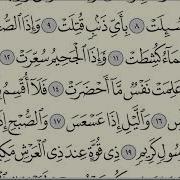 سُئِلَتْ ٨ بِأَيِّ ذَنۢبٍ قُتِلَتْ ٩ وَإِذَا ٱلصُّ
مَآءُ كُشِطَتْ ١١ وَإِذَا ٱلْجَحِيمُ سُعِّرَتْ ١٢
عَلِمَتْ نَفْسٌ مَّآ أَحْضَرَتْ ١٤ فَلَآ أُقْسِمُ
١٦ وَٱلَّيْلِ إِذَا عَسْعَسَ ١٧ وَٱلصُّبْحِ إِذَا
سُولٍ كَرِيمٍ ١٩ ذِى قُوَّةٍ عِندَ ذِى ٱلْعَرْشِ مَكِ